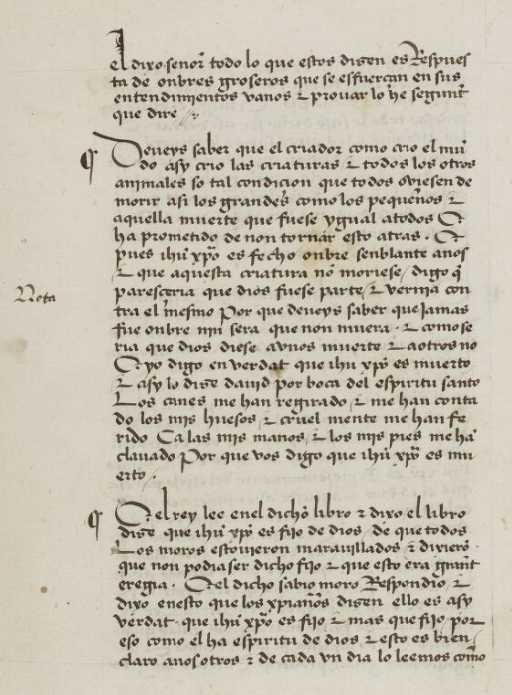 El dixo señor todo lo que estos disen es Respues
ta de onbres groseros que se esfuerçan en sus
entendimientos vanos ⁊ prouar lo he segunt
que dire
¶ Deueys saber que el criador como crio el mũ
do asy crio las criaturas ⁊ todos los otros
animales so tal condicion que todos oviesen de
morir asi los grandes como los pequeños ⁊
aquella muerte que fuese ygual a todos E
ha prometido de non tornar esto atras . E
pues ihũ xp̃o es fecho onbre senblante a nos
⁊ que aquesta criatura nõ moriese / digo q̃
paresceria que dios fuese parte / ⁊ vernia con
Nota
tra el mesmo Por que deueys saber que jamas
fue onbre nin sera que non muera . ⁊ como se
ria que dios diese a vnos muerte ⁊ a otros no
E yo digo en verdat que ihũ xp̃o es muerto
⁊ asy lo dise dauid por boca del espiritu santo
Los canes me han regirado / ⁊ me han conta
do los mis huesos / ⁊ cruel mente me han fe
rido Ca las mis manos / ⁊ los mis pies me hã
clauado Por que vos digo que ihũ xp̃o es mu
erto / .
¶ E el rey lee en el dicho libro ⁊ dixo el libro
dise que ihũ xp̃o es fijo de dios / de que todos
Los moros estouieron marauillados ⁊ dixierõ
que non podia ser dicho fijo ⁊ que esto era grant
eregia . E el dicho sabio moro Respondio / ⁊
dixo en esto que los xp̃ianos disen ello es asy
verdat . que ihũ xp̃o es fijo ⁊ mas que fijo por
eso como el ha espiritu de dios ⁊ esto es bien
claro a nosotros ⁊ de cada vn dia lo leemos como